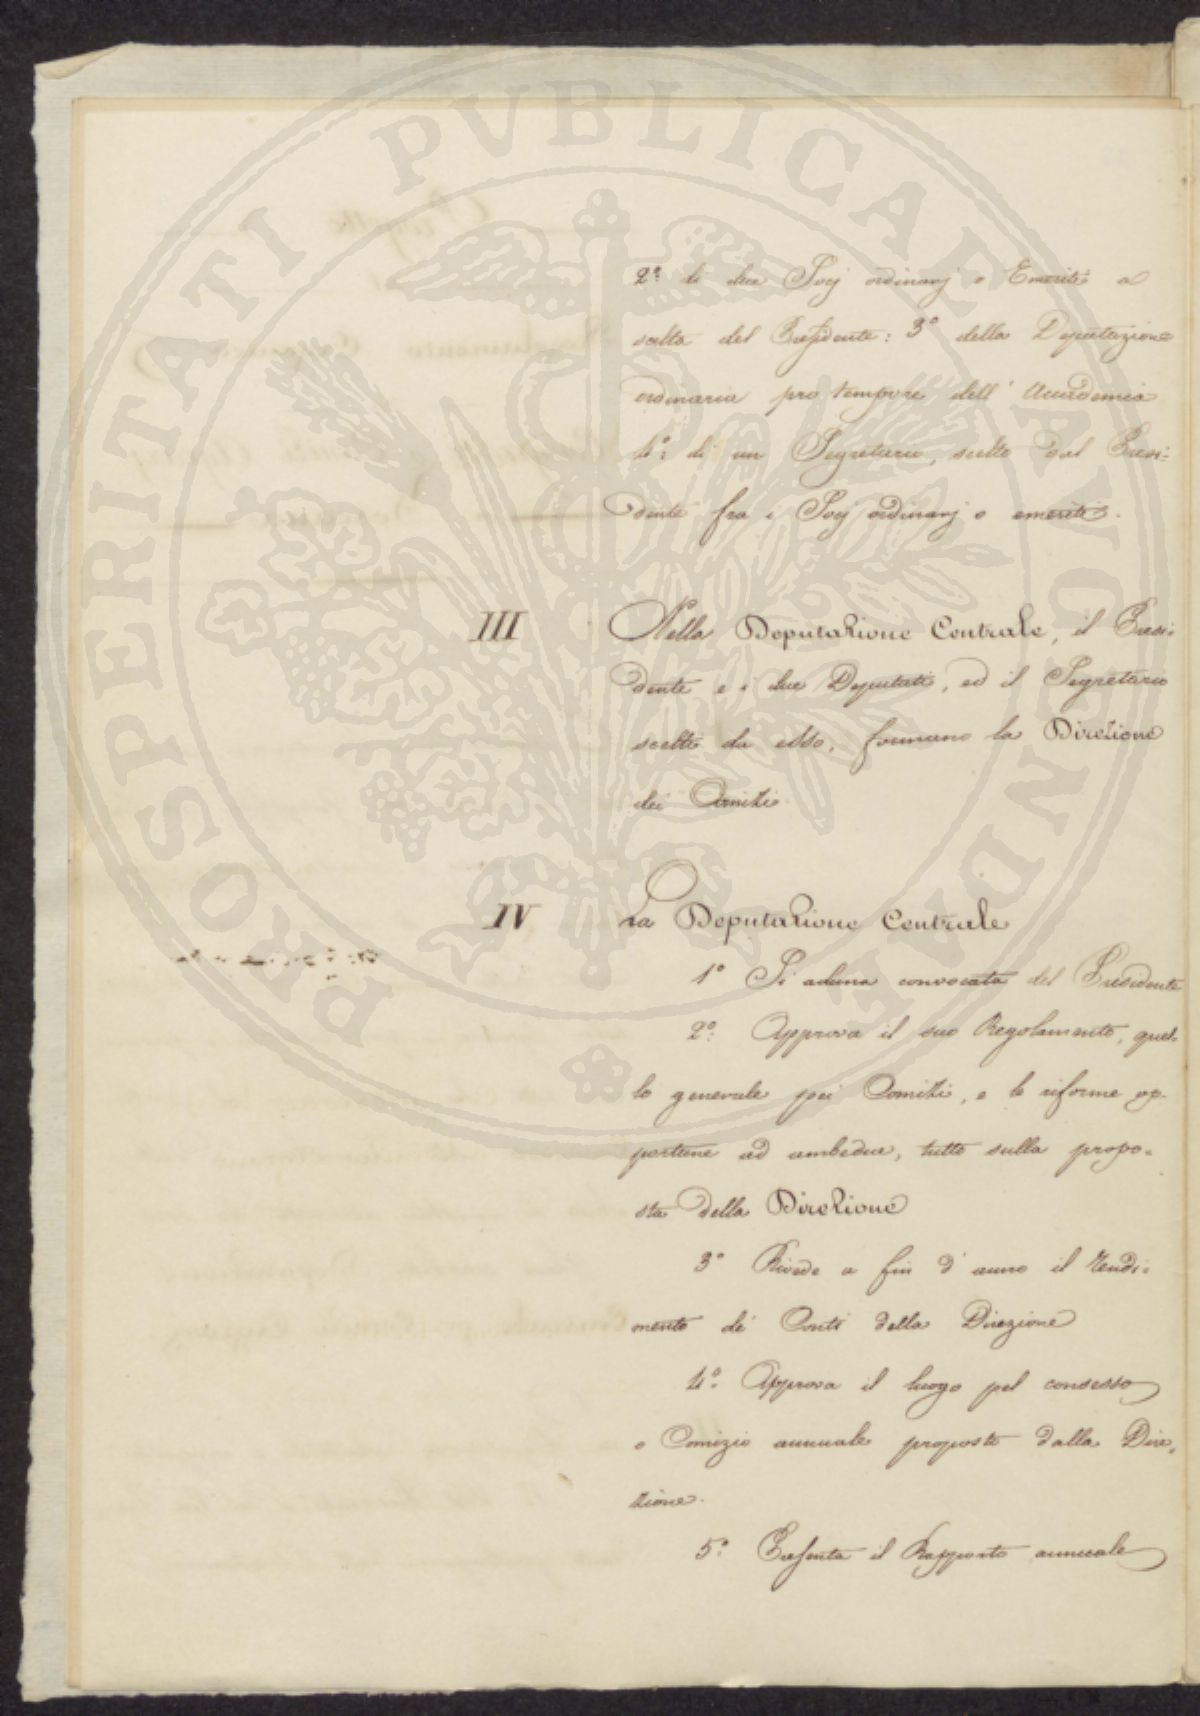 PROSPERITATI PVBLICAE AVGENDAE
2º di due Socj ordinarj o Emeriti a
scelta del Presidente: 3º della Deputazione
ordinaria pro tempore dell' Accademia
4º: di un Segretario, scelto dal Presi=
dente fra i Socj ordinarj o emeriti.
III Nella Deputazione Centrale, il Presi=
dente e i due Deputati, ed il Segretario
scelti da esso, formano la Direzione
dei Comizi
IV La Deputazione Centrale
1º Si aduna convocata dal Presidente
2º: Approva il suo Regolamento, quel-
lo generale pei Comizi, e le riforme op-
portune ad ambedue, tutto sulla propo-
sta della Direzione
3º Rivede a fin d'anno il rendi=
mento de' Conti della Direzione
4º: Approva il luogo pel consesso
o Comizio annuale proposto dalla Dire,
zione.
5º: Presenta il Rapporto annuale